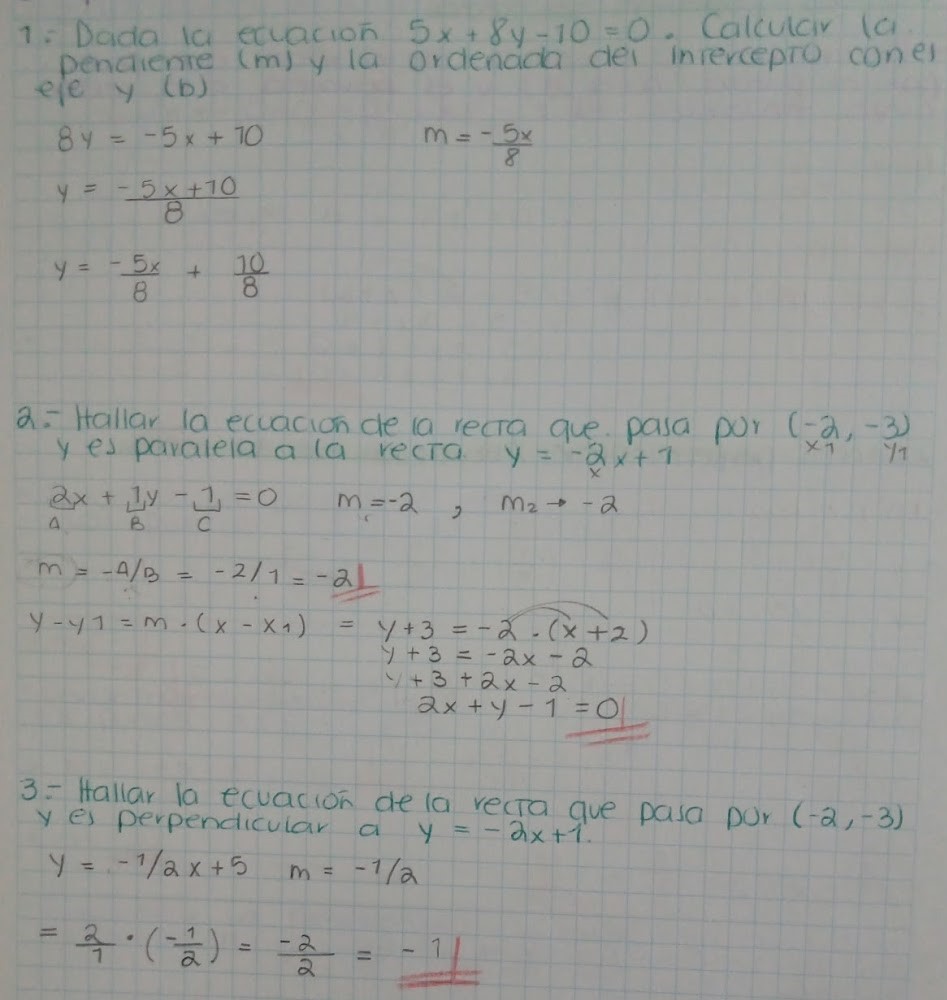 1.- Dada la ecuación 5x + 8y - 10 = 0. Calcular la
pendiente (m) y la ordenada del intercepto con el
eje y (b)
8y = -5x + 10 m = -5x/8
y = -5x+10/8
y = -5x/8 + 10/8
2.- Hallar la ecuación de la recta que pasa por (-2, -3)
x1 y1
y es paralela a la recta y = -2x+1
x
2x + 1y - 1 = 0 m = -2 , m2 → -2
A B C
m = -A/B = -2/1 = -2
y-y1 = m · (x - x1) = y+3 = -2 · (x+2)
y+3 = -2x - 2
y+3+2x-2
2x+y-1 = 0
3.- Hallar la ecuación de la recta que pasa por (-2, -3)
y es perpendicular a y = -2x+1.
y = -1/2x+5 m = -1/2
= 2/1 · (-1/2) = -2/2 = -1